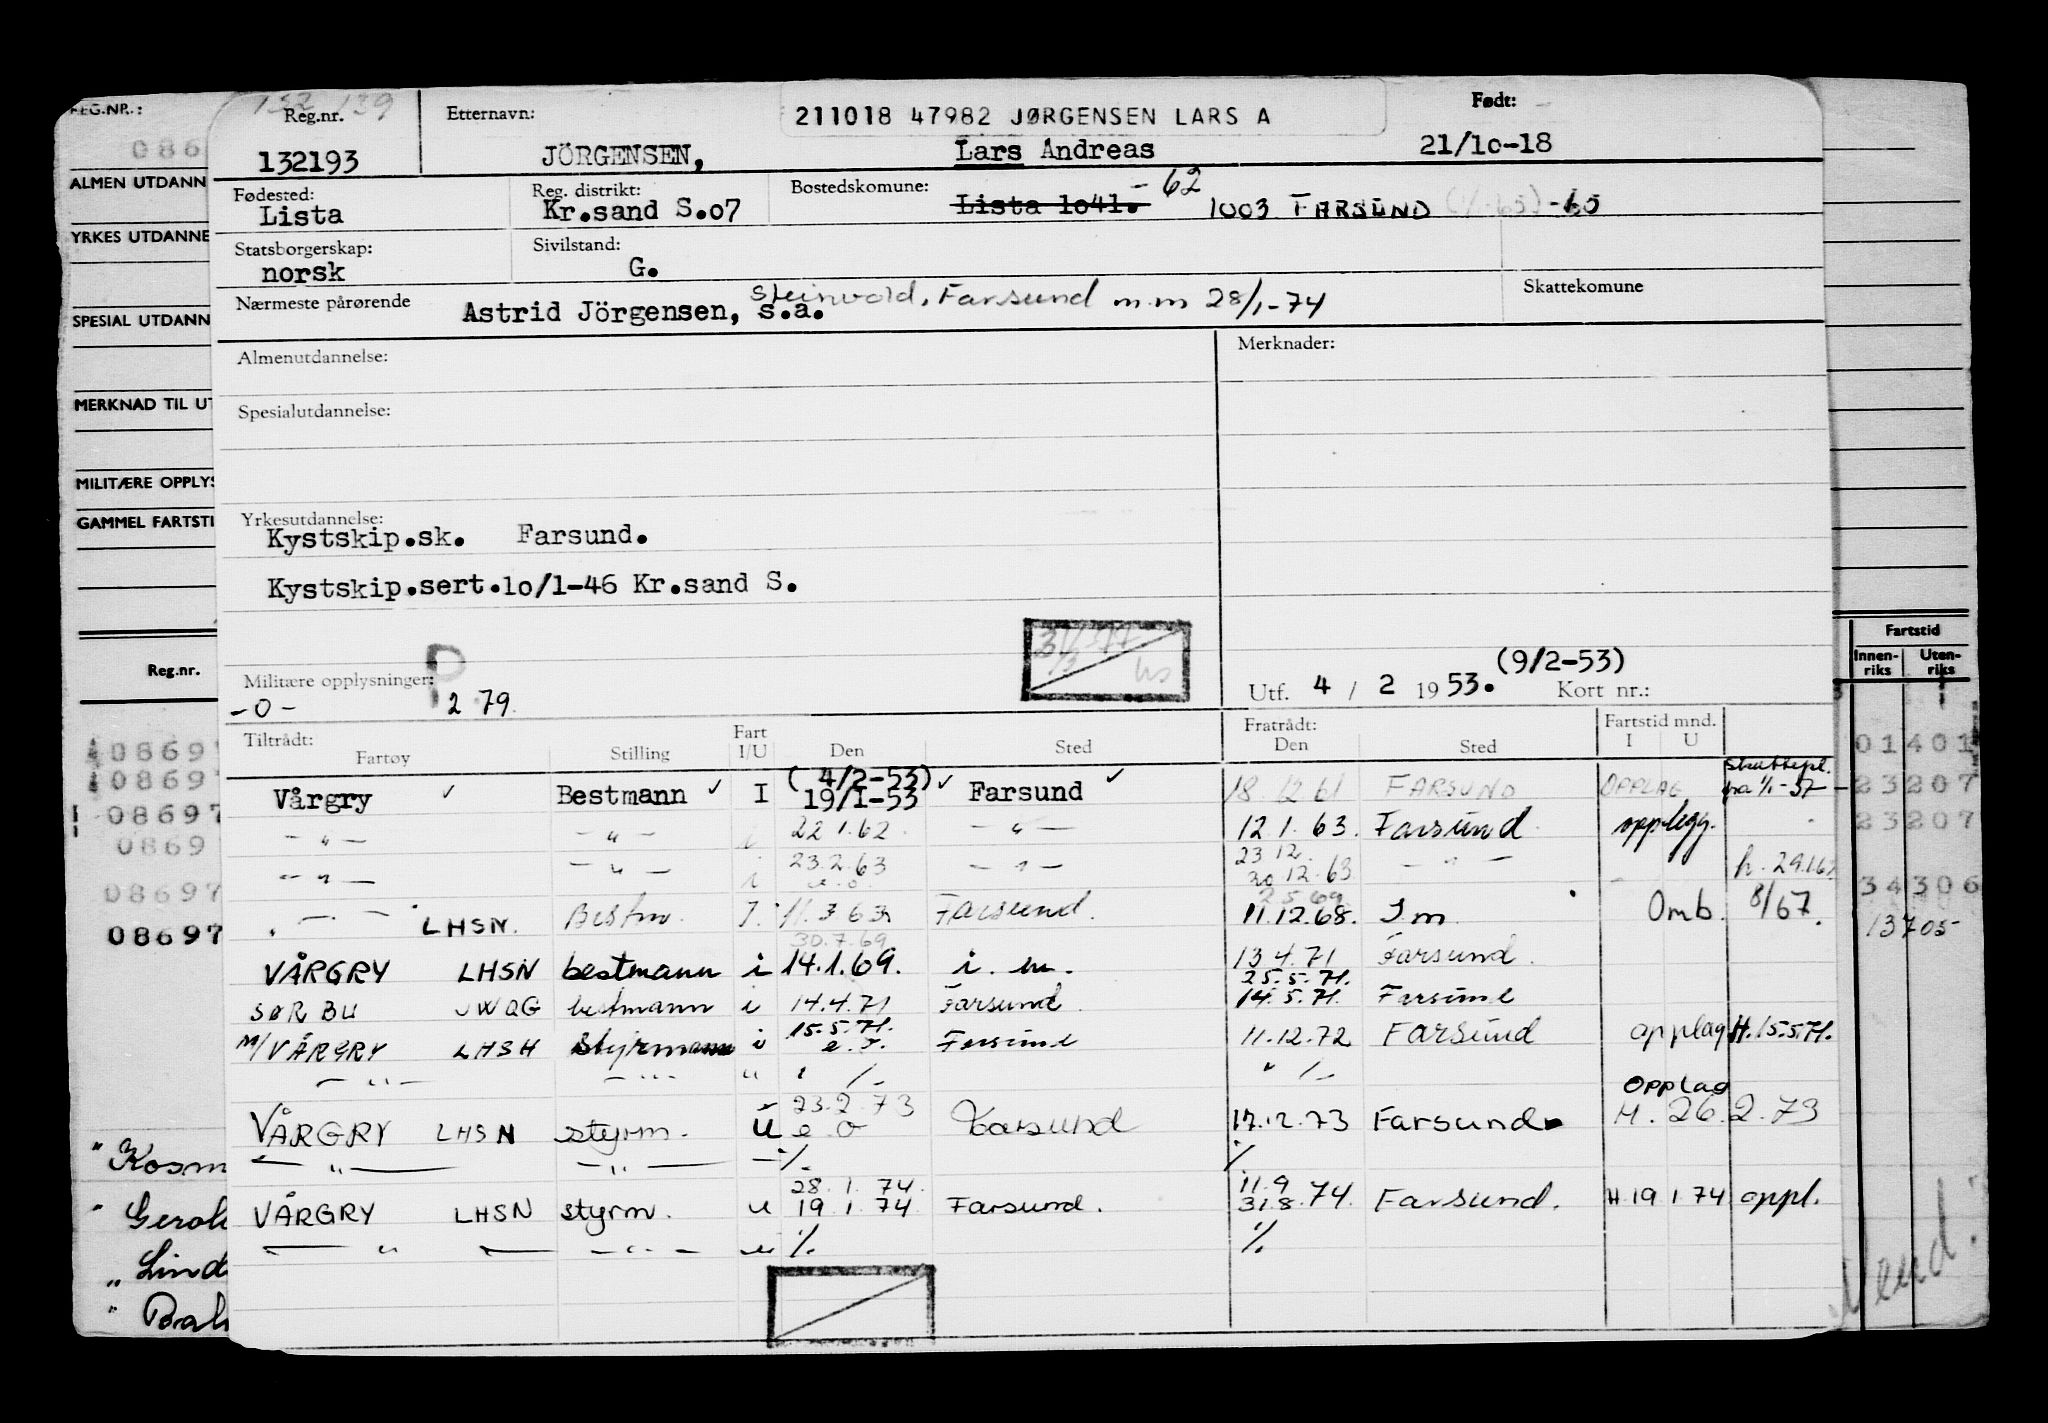 132 139
Reg.nr.
132193
Etternavn:
JÖRGENSEN,
211018 47982 JØRGENSEN LARS A
Lars Andreas
Født:
21/10-18
Fødested:
Lista
Reg. distrikt:
Kr.sand S.07
Bostedskomune:
Lista 1041. - 62 1003 FARSUND -65
Statsborgerskap:
norsk
Sivilstand:
G.
Nærmeste pårørende
Astrid Jörgensen, s.a.
Farsund m.m 28/1-74
Skattekomune
Almenutdannelse:
Merknader:
Spesialutdannelse:
Yrkesutdannelse:
Kystskip.sk. Farsund.
Kystskip.sert.10/1-46 Kr.sand S.
Militære opplysninger:
-0- P 2 79.
(9/2-53)
Utf. 4 / 2 1953. Kort nr.:
Tiltrådt: Fartøy Stilling Fart I/U Den Sted Fratrådt: Den Sted Fartstid mnd. I U
Vårgry Bestmann I (4/2-53) 19/1-53 Farsund 18.12.61 FARSUND OPPLAG fra 1/1-57
-"- -"- i 22 1.62. -"- 12.1.63. Farsund opplegg.
-"- -"- i 23.2.63 -"- 23 12. 30 12.63 -"-
-"- LHSN. Bestm. I. 11.3 63 Farsund. 11.12.68. I m Omb. 8/67.
30.7.69
VÅRGRY LHSN bestmann i 14.1.69. i. m. 13 4.71 Farsund.
25.5.71.
SØR BU JWQG bestmann i 14.4.71 Farsund 14.5.71. Farsund
15.5.71.
M/VÅRGRY LHSH styrmann i e.o. Farsund 11.12.72 FARSUND opplag H.15.5.71.
-"- -"- " " /- " /-
VÅRGRY LHSN styrm. U 23.2.73 e o Farsund 17.12.73 Farsund Opplag H. 26.2.73
-"- -"- -/. /.
28.1.74. 11.9
VÅRGRY LHSN styrm. u 19 1 74 Farsund. 31.8.74. Farsund. H 19 1.74 oppl.
-"- -"- -"- /. /.
REG.NR.:
086
ALMEN UTDANN
YRKES UTDANNE
SPESIAL UTDANN
MERKNAD TIL UT
MILITÆRE OPPLYS
GAMMEL FARTSTI
Reg.nr.
08697
08697
08697
0869
08697
08697
"Kosm
" Gerol
" Lind
Fartstid
Innen-riks Uten-riks
01401
23207
23207
34306
13705
Vend!